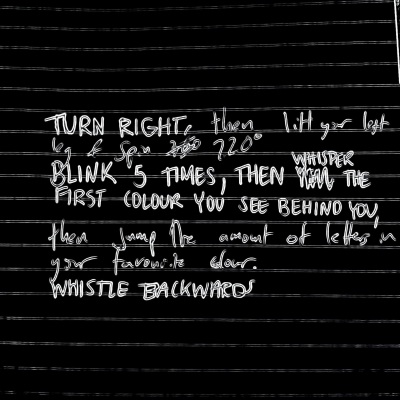 TURN RIGHT, then lift your left
leg & Spin 720°
BLINK 5 TIMES, THEN WHISPER THE
FIRST COLOUR YOU SEE BEHIND YOU,
then jump the amount of letters in
your favourite colour.
WHISTLE BACKWARDS